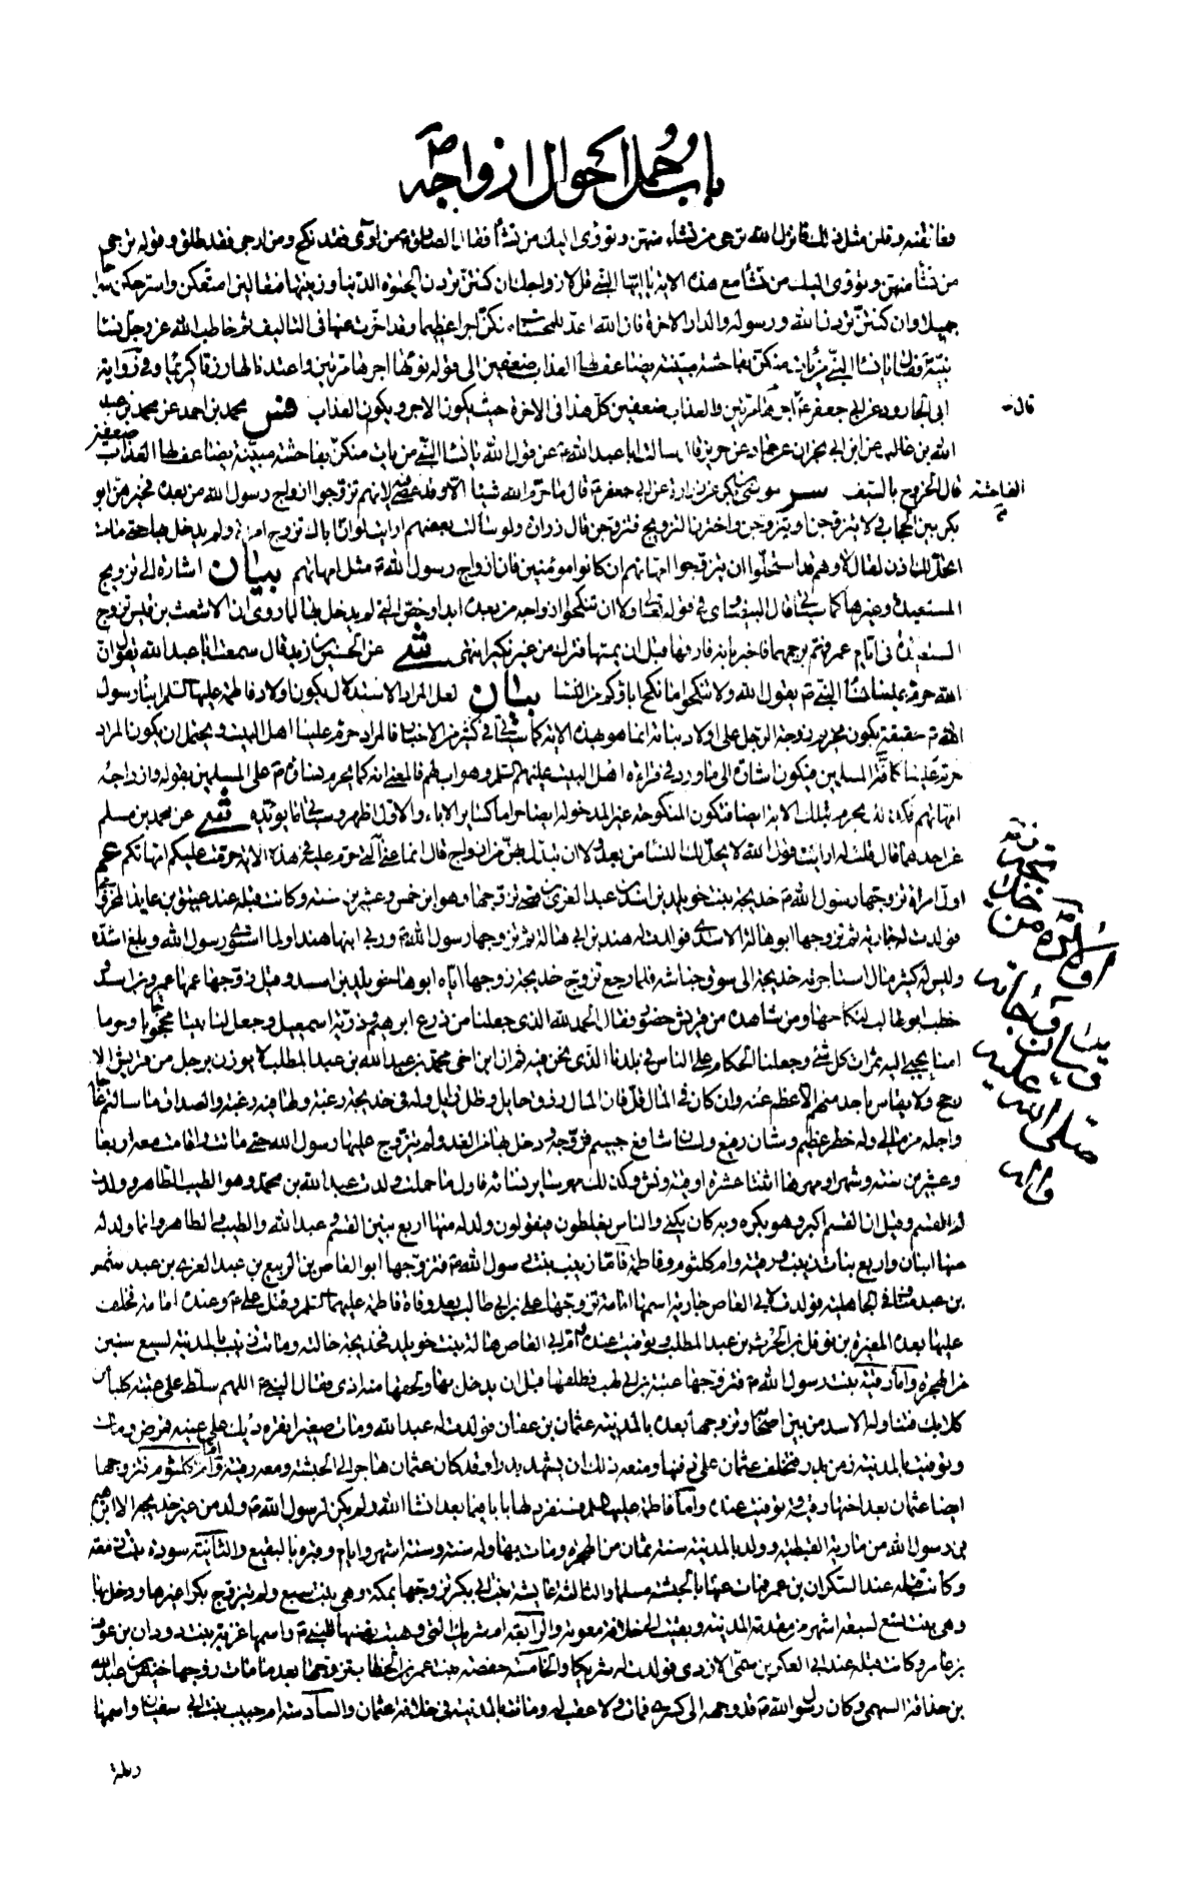 باب جمل احوال ازواجه ص
فعانقنه وقلن مثل ذلك فانزل الله ترجي من تشاء منهن وتؤوي اليك من تشاء فقال الصادق ع من اوى فقد نكح ومن ارجى فقد طلق وقوله ترجي
من تشاء منهن وتؤوي اليك من تشاء مع هذه الاية يا ايها النبي قل لازواجك ان كنتن تردن الحيوة الدنيا وزينتها فتعالين امتعكن واسرحكن سراحا
جميلا وان كنتن تردن الله ورسوله والدار الاخرة فان الله اعد للمحسنات منكن اجرا عظيما وقد اخرت عنها في التاليف ثم خاطب الله عز وجل نساء
نبيه فقال يا نساء النبي من يات منكن بفاحشة مبينة يضاعف لها العذاب ضعفين الى قوله نؤتها اجرها مرتين واعتدنا لها رزقا كريما وفي رواية
ابي الجارود عن ابي جعفر ع اجرها مرتين والعذاب ضعفين كل هذا في الاخرة حيث يكون الاجر ويكون العذاب فس محمد بن احمد عن محمد بن عبد
قال
الله بن غالب عن ابن ابي نجران عن حماد عن حريز قال سالت ابا عبد الله ع عن قول الله يا نساء النبي من يات منكن بفاحشة مبينة يضاعف لها العذاب ضعفين
الفاحشة
قال الخروج بالسيف سر موسى بن بكر عن زرارة عن ابي جعفر ع قال ما حرم الله شيئا الا وقد عصي فيه لانهم تزوجوا ازواج رسول الله من بعده فخيرهن ابو
بكر بين الحجاب ولا يتزوجن او يتزوجن فاخترن التزويج فتزوجن قال زرارة ولو سالت بعضهم ارايت لو ان اباك تزوج امراة ولم يدخل بها حتى مات
اتحل لك اذن لقال لا وهم قد استحلوا ان يتزوجوا امهاتهم ان كانوا مؤمنين فان ازواج رسول الله ص مثل امهاتهم بيان اشارة الى تزويج
المستعيذة وغيرها كما سياتي قال البيضاوي في قوله تعالى ولا ان تنكحوا ازواجه من بعده ابدا وخص التي لم يدخل بها لما روي ان الاشعث بن قيس تزوج
المستعيذة في ايام عمر فهم برجمهما فاخبر بانه فارقها قبل ان يمسها فترك من غير نكير انتهى شى عن الحسين بن زيد قال سمعت ابا عبد الله يقول ان
الله حرم علينا نساء النبي ص يقول الله ولا تنكحوا ما نكح اباؤكم من النساء بيان لعل المراد الاستدلال بكون اولاد فاطمة عليها السلم ابناء رسول
الله ص حقيقة بكون تحريم زوجة الرجل على اولاد بناته انما هو بهذه الاية كما سياتي في كثير من الاخبار فالمراد حرم علينا اهل البيت ويحتمل ان يكون المراد
حرم علينا كافة المسلمين فيكون اشارة الى ما ورد في قراءة اهل البيت عليهم السلم وهو اب لهم فالمعنى انه كما يحرم نساؤه ص على المسلمين بقوله وازواجه
امهاتهم فكذلك يحرم بتلك الاية ايضا فتكون المنكوحة غير المدخولة ايضا حراما كساير الاباء والاول اظهر وسياتي ما يؤيده شى عن محمد بن مسلم
عن احدهما قال قلت له ارايت قول الله لا يحل لك النساء من بعد ولا ان تبدل بهن من ازواج قال انما عنى التي حرم عليه في هذه الاية حرمت عليكم امهاتكم عم
اول امراة تزوجها رسول الله ص خديجة بنت خويلد بن اسد بن عبد العزى بن قصي تزوجها وهو ابن خمس وعشرين سنة وكانت قبله عند عتيق بن عايذ المخزومي
فولدت له جارية ثم تزوجها ابو هالة الاسدي فولدت له هند بن ابي هالة ثم تزوجها رسول الله ص وربى ابنها هندا ولما استوى رسول الله وبلغ اشده
وليس له كثير مال استاجرته خديجة الى سوق حباشة فلما رجع تزوج خديجة زوجها اياه ابوها خويلد بن اسد وقيل زوجها عمها عمرو بن اسد
خطب ابو طالب لنكاحها ومن شاهده من قريش حضور فقال الحمد لله الذي جعلنا من زرع ابرهيم وذرية اسمعيل وجعل لنا بيتا محجوجا وحرما
امنا يجبى اليه ثمرات كل شئ وجعلنا الحكام على الناس في بلدنا الذي نحن فيه ثم ان ابن اخي محمد بن عبد الله بن عبد المطلب لا يوزن برجل من قريش الا
رجح ولا يقاس باحد منهم الا عظم عنه وان كان في المال قل فان المال رزق حايل وظل زايل وله في خديجة رغبة ولها فيه رغبة والصداق ما سالتم عاجله
واجله من مالي وله خطر عظيم وشان رفيع ولسان شافع جسيم فزوجه ودخل بها من الغد ولم يتزوج عليها رسول الله حتى ماتت واقامت معه اربعا
وعشرين سنة وشهرا ومهرها اثنتا عشرة اوقية ونش وكذلك مهر ساير نسائه فاول ما حملت ولدت عبد الله بن محمد وهو الطيب الطاهر وولدت
له القسم وقيل ان القسم اكبر وهو بكره وبه كان يكنى والناس يغلطون فيقولون ولد له منها اربع بنين القسم وعبد الله والطيب والطاهر وانما ولد له
منها ابنان واربع بنات زينب ورقية وام كلثوم وفاطمة فاما زينب بنت رسول الله ص فتزوجها ابو العاص بن الربيع بن عبد العزى بن عبد شمس
بن عبد مناف في الجاهلية فولدت لابي العاص جارية اسمها امامة تزوجها علي بن ابي طالب بعد وفاة فاطمة عليهما السلم وقتل علي ع وعنده امامة فخلف
عليها بعده المغيرة بن نوفل بن الحرث بن عبد المطلب وتوفيت عنده وام ابي العاص هالة بنت خويلد فخديجة خالته وماتت زينب بالمدينة لسبع سنين
من الهجرة واما رقية بنت رسول الله ص فتزوجها عتبة بن ابي لهب فطلقها قبل ان يدخل بها ولحقها منه اذى فقال النبي ص اللهم سلط على عتبة كلبا من
كلابك فتناوله الاسد من بين اصحابه وتزوجها بعده بالمدينة عثمان بن عفان فولدت له عبد الله ومات صغيرا نقره ديك على عينيه فمرض ومات
وتوفيت بالمدينة زمن بدر فتخلف عثمان على دفنها ومنعه ذلك ان يشهد بدرا وقد كان عثمان هاجر الى الحبشة ومعه رقية واما ام كلثوم فتزوجها
ايضا عثمان بعد اختها رقية وتوفيت عنده واما فاطمة عليها السلم فسنفرد لها بابا فيما بعد انشاء الله ولم يكن لرسول الله ص ولد من غير خديجة الا ابرهيم
بن رسول الله من مارية القبطية وولد بالمدينة سنة ثمان من الهجرة ومات بها وله سنة وستة اشهر وايام وقبره بالبقيع والثانية سودة بنت زمعة
وكانت قبله عند السكران بن عمرو فمات عنها بالحبشة مسلما والثالثة عايشة بنت ابي بكر تزوجها بمكة وهي بنت سبع ولم يتزوج بكرا غيرها ودخل بها
وهي بنت تسع لسبعة اشهر من مقدمه المدينة وبقيت الى خلافة معوية والرابعة ام شريك التي وهبت نفسها للنبي ص واسمها غزية بنت دودان بن عوف
بن عامر وكانت قبله عند ابي العكر بن سمى الازدي فولدت له شريكا والخامسة حفصة بنت عمر بن الخطاب تزوجها بعد ما مات زوجها خنيس بن عبد الله
بن حذافة السهمي وكان رسول الله ص قد وجهه الى كسرى فمات ولا عقب له وماتت بالمدينة في خلافة عثمان والسادسة ام حبيبة بنت ابي سفيان واسمها
رملة